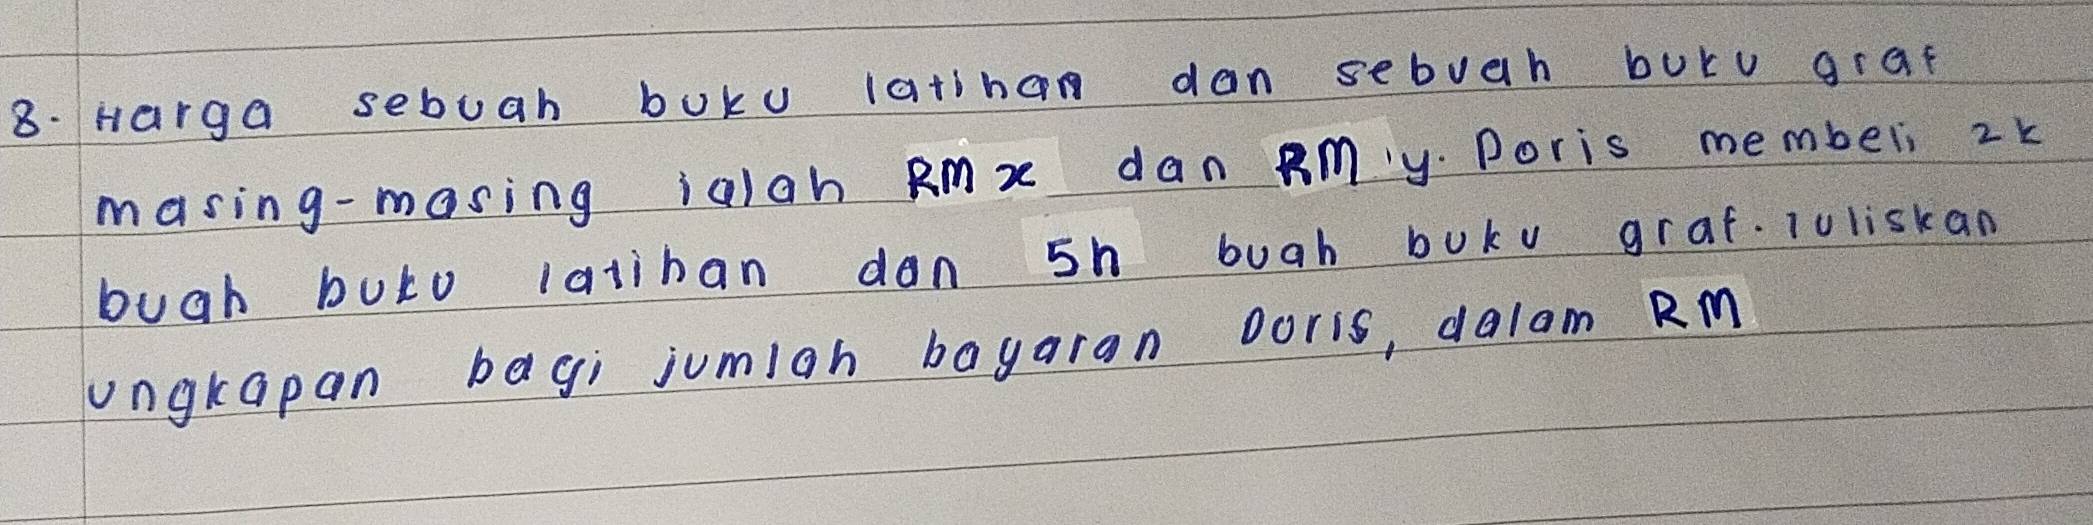 8. Harga sebuah buku latihan dan sebuah buku graf
masing-masing ialah RM x dan RM y. Doris membeli 2k
buah buku latihan dan 5h buah buku graf. Tuliskan
ungkapan bagi jumlah bayaran Doris, dalam RM